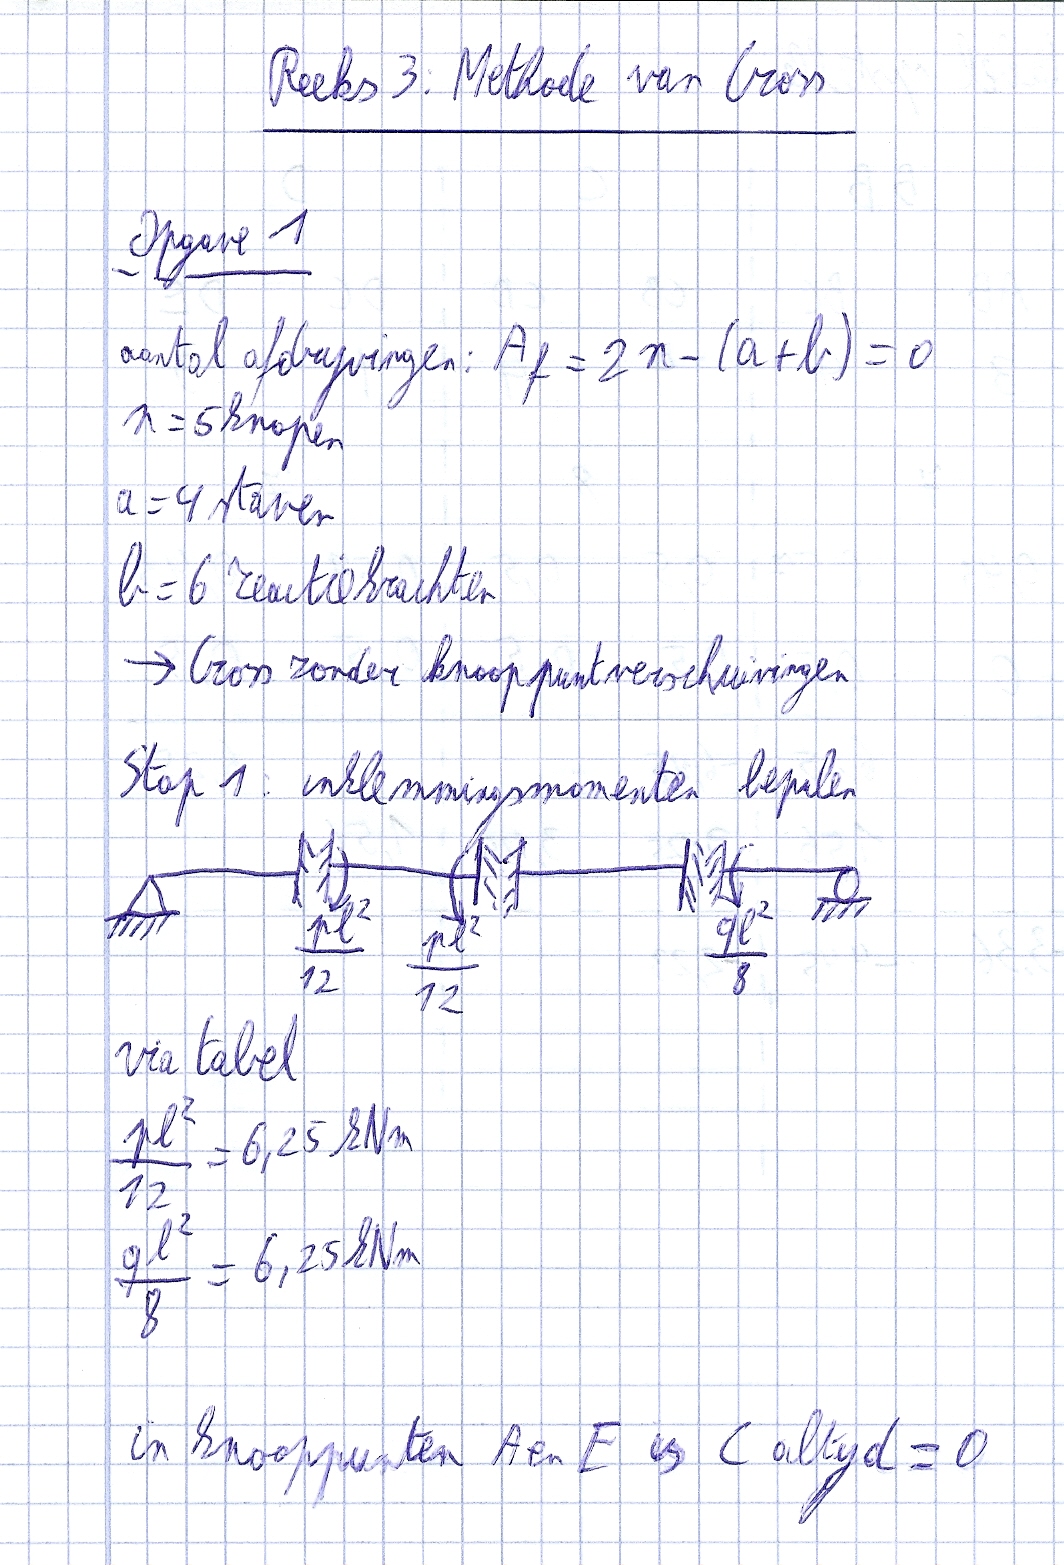 Reeks 3: Methode van Cross
Opgave 1
aantal afdrijvingen: Af = 2n - (a+b) = 0
n = 5 knopen
a = 4 staven
b = 6 reactiekrachten
→ Cross zonder knooppuntverschuivingen
Stap 1: inklemmingsmomenten bepalen
pl²/12 pl²/12 ql²/8
via tabel
pl²/12 = 6,25 kNm
ql²/8 = 6,25 kNm
in knooppunten A en E is C altyd = 0